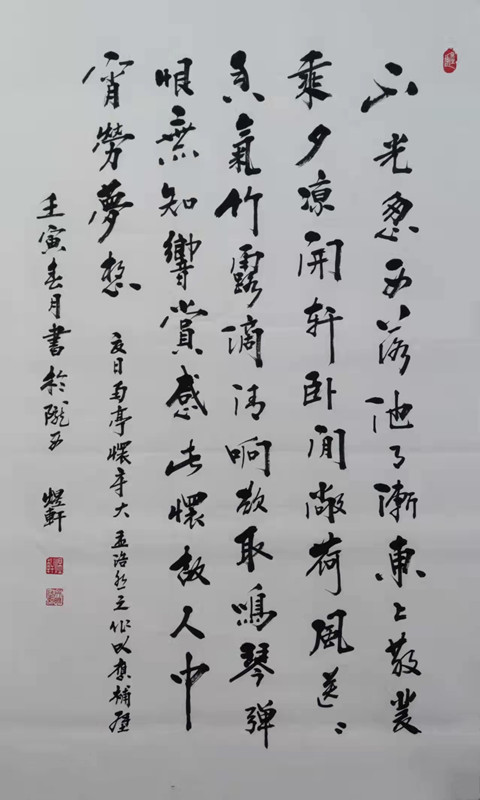 山光忽西落池月漸東上散髮
乘夕凉開軒卧閒敞荷風送
香氣竹露滴清响欲取鳴琴彈
恨無知響賞感此懷故人中
宵勞夢想
夏日南亭懷辛大 孟浩然之作以補壁
壬寅春月書於隴西 煜軒